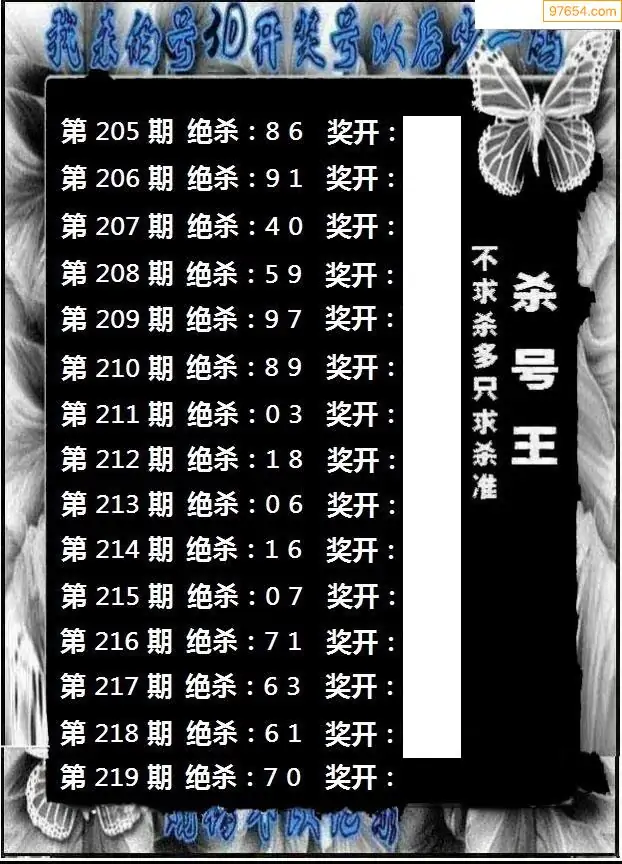 97654.com
我杀的号3D开奖号以后少一码
第 205 期 绝杀:8 6 奖开:
第 206 期 绝杀:9 1 奖开:
第 207 期 绝杀:4 0 奖开:
第 208 期 绝杀:5 9 奖开:
第 209 期 绝杀:9 7 奖开:
第 210 期 绝杀:8 9 奖开:
第 211 期 绝杀:0 3 奖开:
第 212 期 绝杀:1 8 奖开:
第 213 期 绝杀:0 6 奖开:
第 214 期 绝杀:1 6 奖开:
第 215 期 绝杀:0 7 奖开:
第 216 期 绝杀:7 1 奖开:
第 217 期 绝杀:6 3 奖开:
第 218 期 绝杀:6 1 奖开:
第 219 期 绝杀:7 0 奖开:
杀号王
不求杀多只求杀准